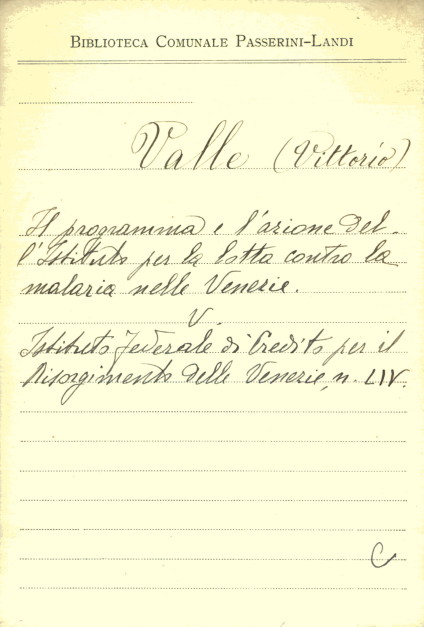 BIBLIOTECA COMUNALE PASSERINI-LANDI
Valle (Vittorio)
Il programma e l'azione del-
l'Istituto per la lotta contro la
malaria nelle Venezie.
V.
Istituto Federale di Credito per il
Risorgimento delle Venezie, n. LIV.
C